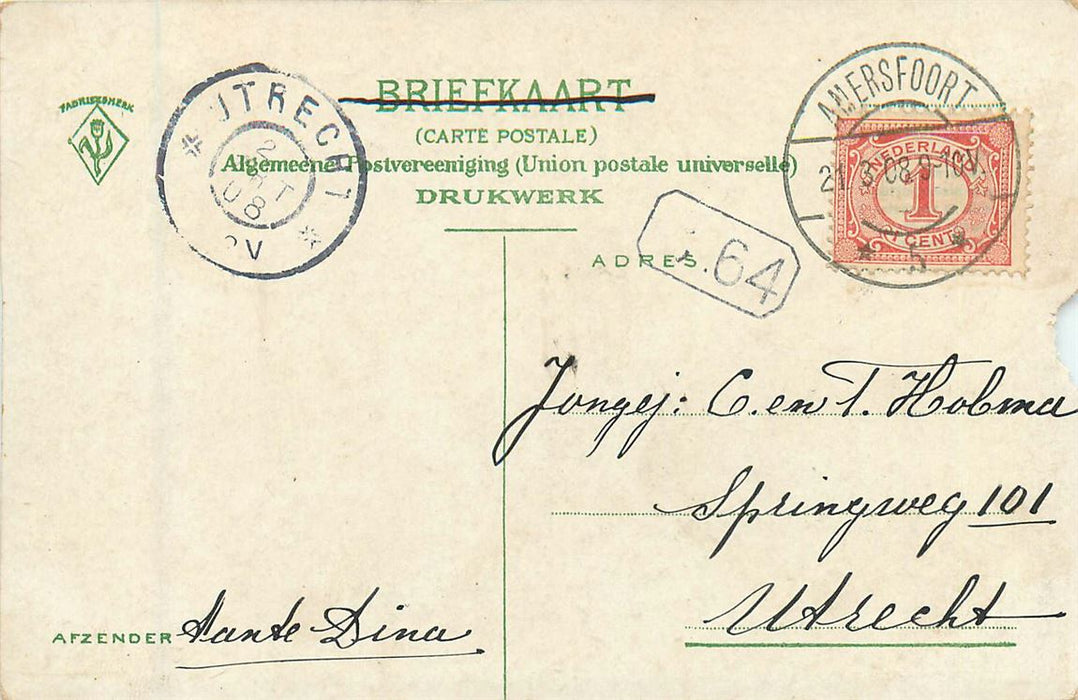 FABRIEKSMERK
UTRECHT
2
OCT
08
V
BRIEFKAART
(CARTE POSTALE)
Algemeene Postvereeniging (Union postale universelle)
DRUKWERK
AMERSFOORT
08 9-10V
5
NEDERLAND
1
1 CENT
ADRES
64
Jongej: C. en T. Hobma
Springweg 101
Utrecht
AFZENDER Tante Dina